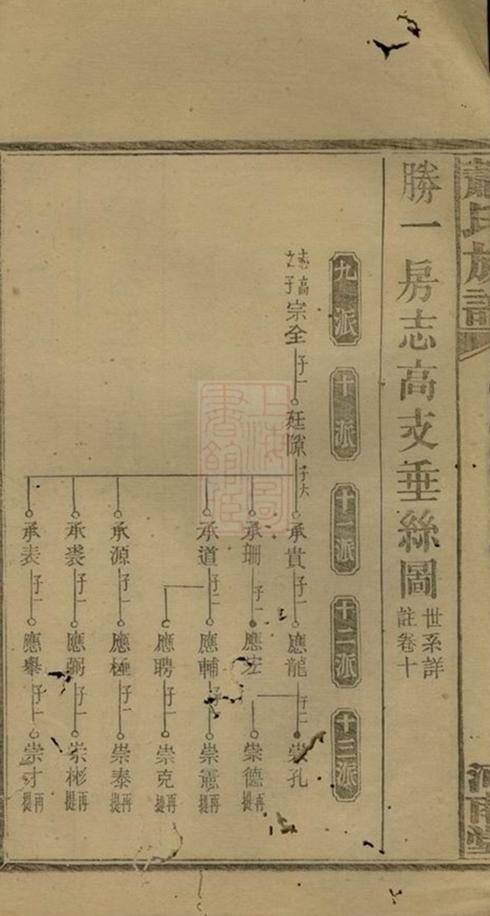 氏族譜
勝一房志高支垂絲圖
世系詳
註卷十
九派
十派
十一派
十二派
十三派
志高
之子
宗全
子一
廷隙
子六
承貴
子一
應龍
子二
崇孔
承珊
應宏
崇德
再提
承道
子二
應輔
子一
崇憲
再提
應聘
子一
崇克
再提
承源
子一
應極
子一
崇泰
再提
承裘
子一
應弼
子一
崇彬
再提
承表
子一
應舉
子一
崇才
再提
河南堂
上海圖書館藏